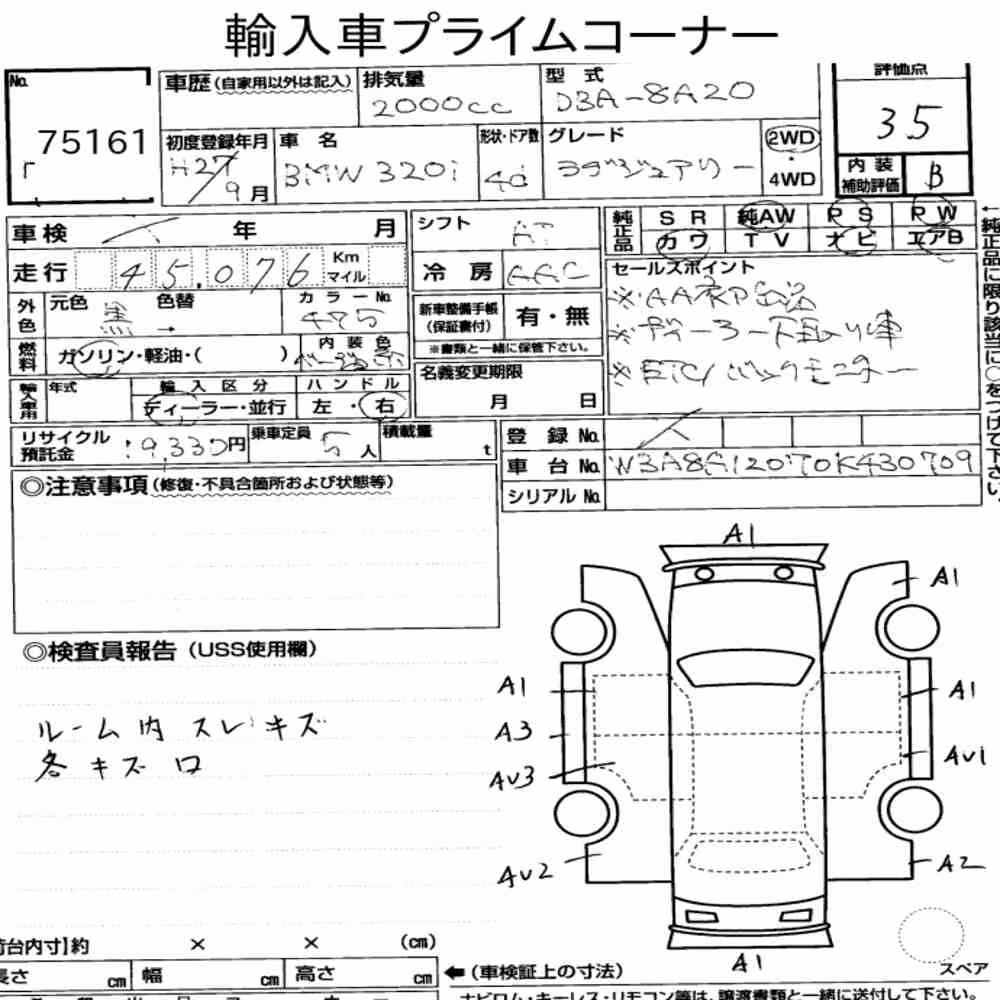 輸入車プライムコーナー
No. 75161
車歴(自家用以外は記入) 排気量 2000cc 型式 DBA-8A20 評価点 35
初度登録年月 H27/9月 車名 BMW 320i 形状・ドア数 4d グレード ラグジュアリー 2WD・4WD
内装補助評価 B
車検 年 月
走行 45,076 Km マイル
シフト AT
冷房 AAC
純正品 SR 純AW PS PW
カワ TV ナビ エアB
←純正品に限り該当に○をつけて下さい。
外色 元色 黒 色替 → カラーNo. 475
燃料 ガソリン・軽油・( ) 内装色
新車整備手帳(保証書付) 有・無
※書類と一緒に保管下さい。
セールスポイント
※AA
※ディーラー下取り車
※ETC/バックモニター
輸入車用 年式 輸入区分 ディーラー・並行 ハンドル 左・右
名義変更期限 月 日
リサイクル預託金 19,330円 乗車定員 5人 積載量 t
登録No.
車台No. W3A8A120T0K430709
シリアルNo.
◎注意事項(修復・不具合箇所および状態等)
◎検査員報告(USS使用欄)
ルーム内スレキズ
各キズ口
A1
A1
A1 A1
A3
AV3 AV1
AV2 A2
A1
スペア
荷台内寸】約 × × (cm)
長さ cm 幅 cm 高さ cm
←(車検証上の寸法)
ナビロム・キーレス・リモコン等は、譲渡書類と一緒に送付して下さい。